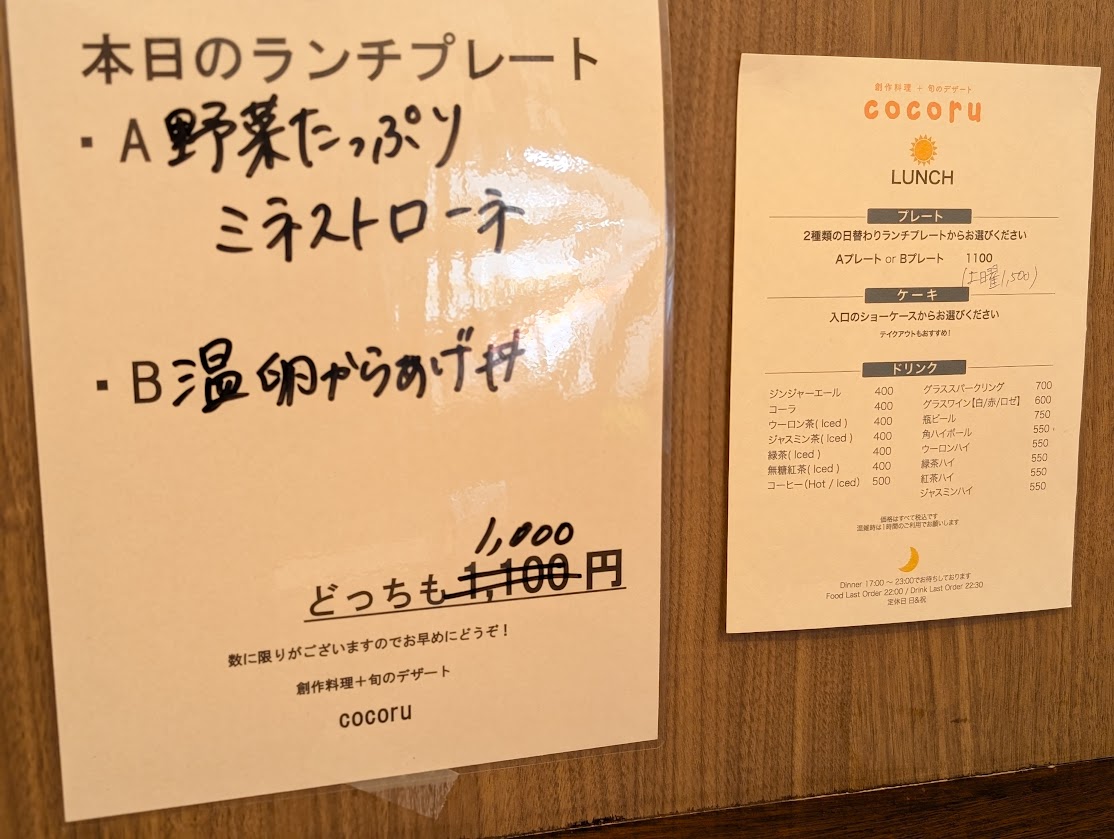 本日のランチプレート
・A 野菜たっぷり
ミネストローネ
・B 温卵からあげ丼
1,000
どっちも1,100円
数に限りがございますのでお早めにどうぞ！
創作料理＋旬のデザート
cocoru
創作料理 + 旬のデザート
cocoru
LUNCH
プレート
2種類の日替わりランチプレートからお選びください
Aプレート or Bプレート 1100
(土曜1,500)
ケーキ
入口のショーケースからお選びください
テイクアウトもおすすめ！
ドリンク
ジンジャーエール 400
コーラ 400
ウーロン茶( Iced ) 400
ジャスミン茶( Iced ) 400
緑茶( Iced ) 400
無糖紅茶( Iced ) 400
コーヒー(Hot / Iced) 500
グラススパークリング 700
グラスワイン【白/赤/ロゼ】 600
瓶ビール 750
角ハイボール 550
ウーロンハイ 550
緑茶ハイ 550
紅茶ハイ 550
ジャスミンハイ 550
価格はすべて税込です
混雑時は1時間のご利用でお願いします
Dinner 17:00 ～ 23:00でお待ちしております
Food Last Order 22:00 / Drink Last Order 22:30
定休日 日&祝